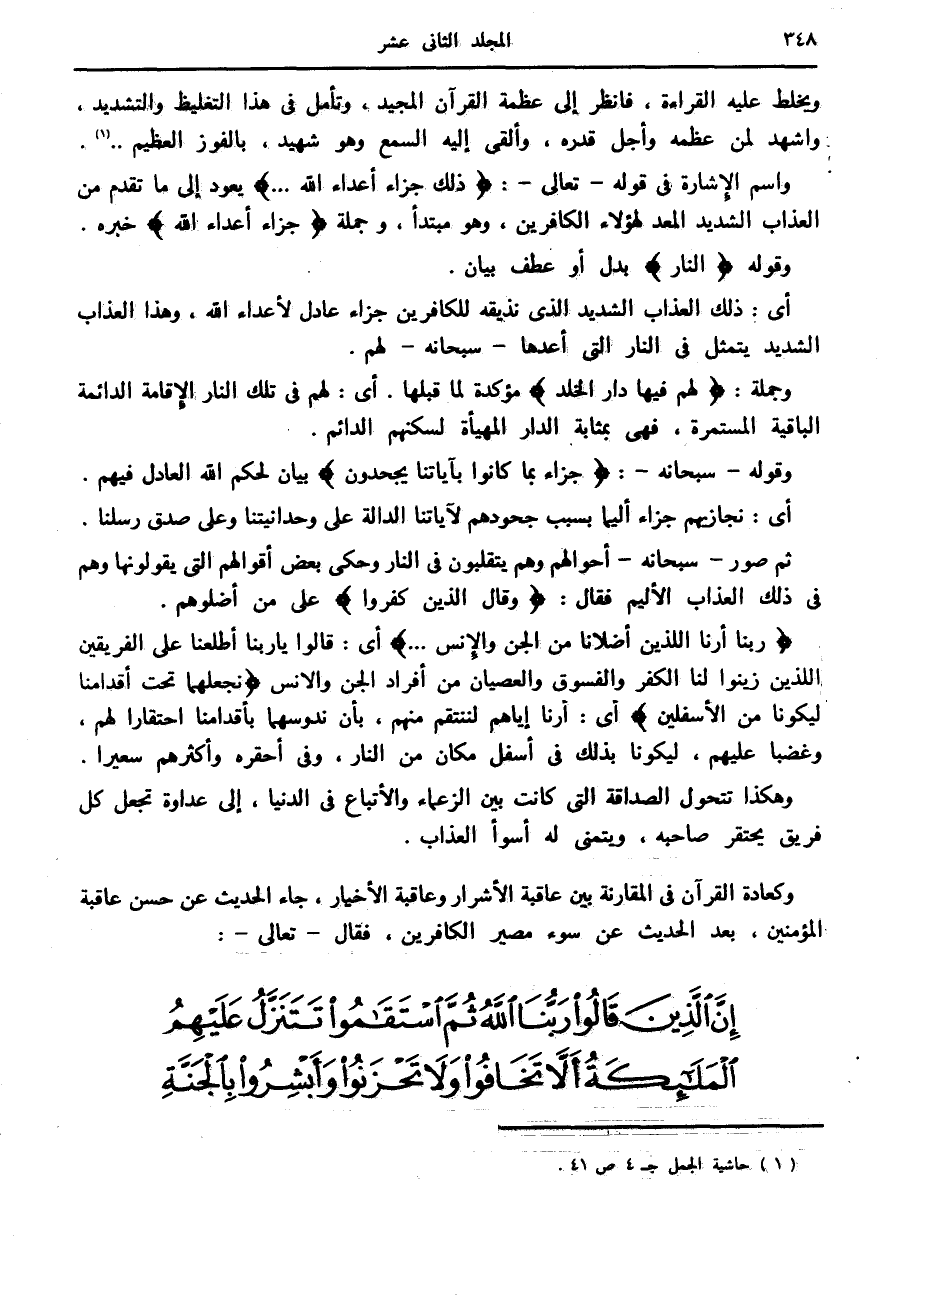 ٣٤٨ المجلد الثانى عشر
ويخلط عليه القراءة ، فانظر إلى عظمة القرآن المجيد ، وتأمل فى هذا التغليظ والتشديد ،
واشهد لمن عظمه وأجل قدره ، وألقى إليه السمع وهو شهيد ، بالفوز العظيم ..(١) .
واسم الإشارة فى قوله – تعالى – : ﴿ ذلك جزاء أعداء الله ...﴾ يعود إلى ما تقدم من
العذاب الشديد المعد لهؤلاء الكافرين ، وهو مبتدأ ، و جملة ﴿ جزاء أعداء الله ﴾ خبره .
وقوله ﴿ النار ﴾ بدل أو عطف بيان .
أى : ذلك العذاب الشديد الذى نذيقه للكافرين جزاء عادل لأعداء الله ، وهذا العذاب
الشديد يتمثل فى النار التى أعدها – سبحانه – لهم .
وجملة : ﴿ لهم فيها دار الخلد ﴾ مؤكدة لما قبلها . أى : لهم فى تلك النار الإقامة الدائمة
الباقية المستمرة ، فهى بمثابة الدار المهيأة لسكنهم الدائم .
وقوله – سبحانه – : ﴿ جزاء بما كانوا بآياتنا يجحدون ﴾ بيان لحكم الله العادل فيهم .
أى : نجازيهم جزاء أليما بسبب جحودهم لآياتنا الدالة على وحدانيتنا وعلى صدق رسلنا .
ثم صور – سبحانه – أحوالهم وهم يتقلبون فى النار وحكى بعض أقوالهم التى يقولونها وهم
فى ذلك العذاب الأليم فقال : ﴿ وقال الذين كفروا ﴾ على من أضلوهم .
﴿ ربنا أرنا اللذين أضلانا من الجن والإنس ...﴾ أى : قالوا ياربنا أطلعنا على الفريقين
اللذين زينوا لنا الكفر والفسوق والعصيان من أفراد الجن والانس ﴿نجعلهما تحت أقدامنا
ليكونا من الأسفلين ﴾ أى : أرنا إياهم لننتقم منهم ، بأن ندوسهما بأقدامنا احتقارا لهم ،
وغضبا عليهم ، ليكونا بذلك فى أسفل مكان من النار ، وفى أحقره وأكثرهم سعيرا .
وهكذا تتحول الصداقة التى كانت بين الزعماء والأتباع فى الدنيا ، إلى عداوة تجعل كل
فريق يحتقر صاحبه ، ويتمنى له أسوأ العذاب .
وكعادة القرآن فى المقارنة بين عاقبة الأشرار وعاقبة الأخيار ، جاء الحديث عن حسن عاقبة
المؤمنين ، بعد الحديث عن سوء مصير الكافرين ، فقال – تعالى – :
إِنَّ ٱلَّذِينَ قَالُوا۟ رَبُّنَا ٱللَّهُ ثُمَّ ٱسْتَقَٰمُوا۟ تَتَنَزَّلُ عَلَيْهِمُ
ٱلْمَلَٰٓئِكَةُ أَلَّا تَخَافُوا۟ وَلَا تَحْزَنُوا۟ وَأَبْشِرُوا۟ بِٱلْجَنَّةِ
( ١ ) حاشية الجمل جـ ٤ ص ٤١ .